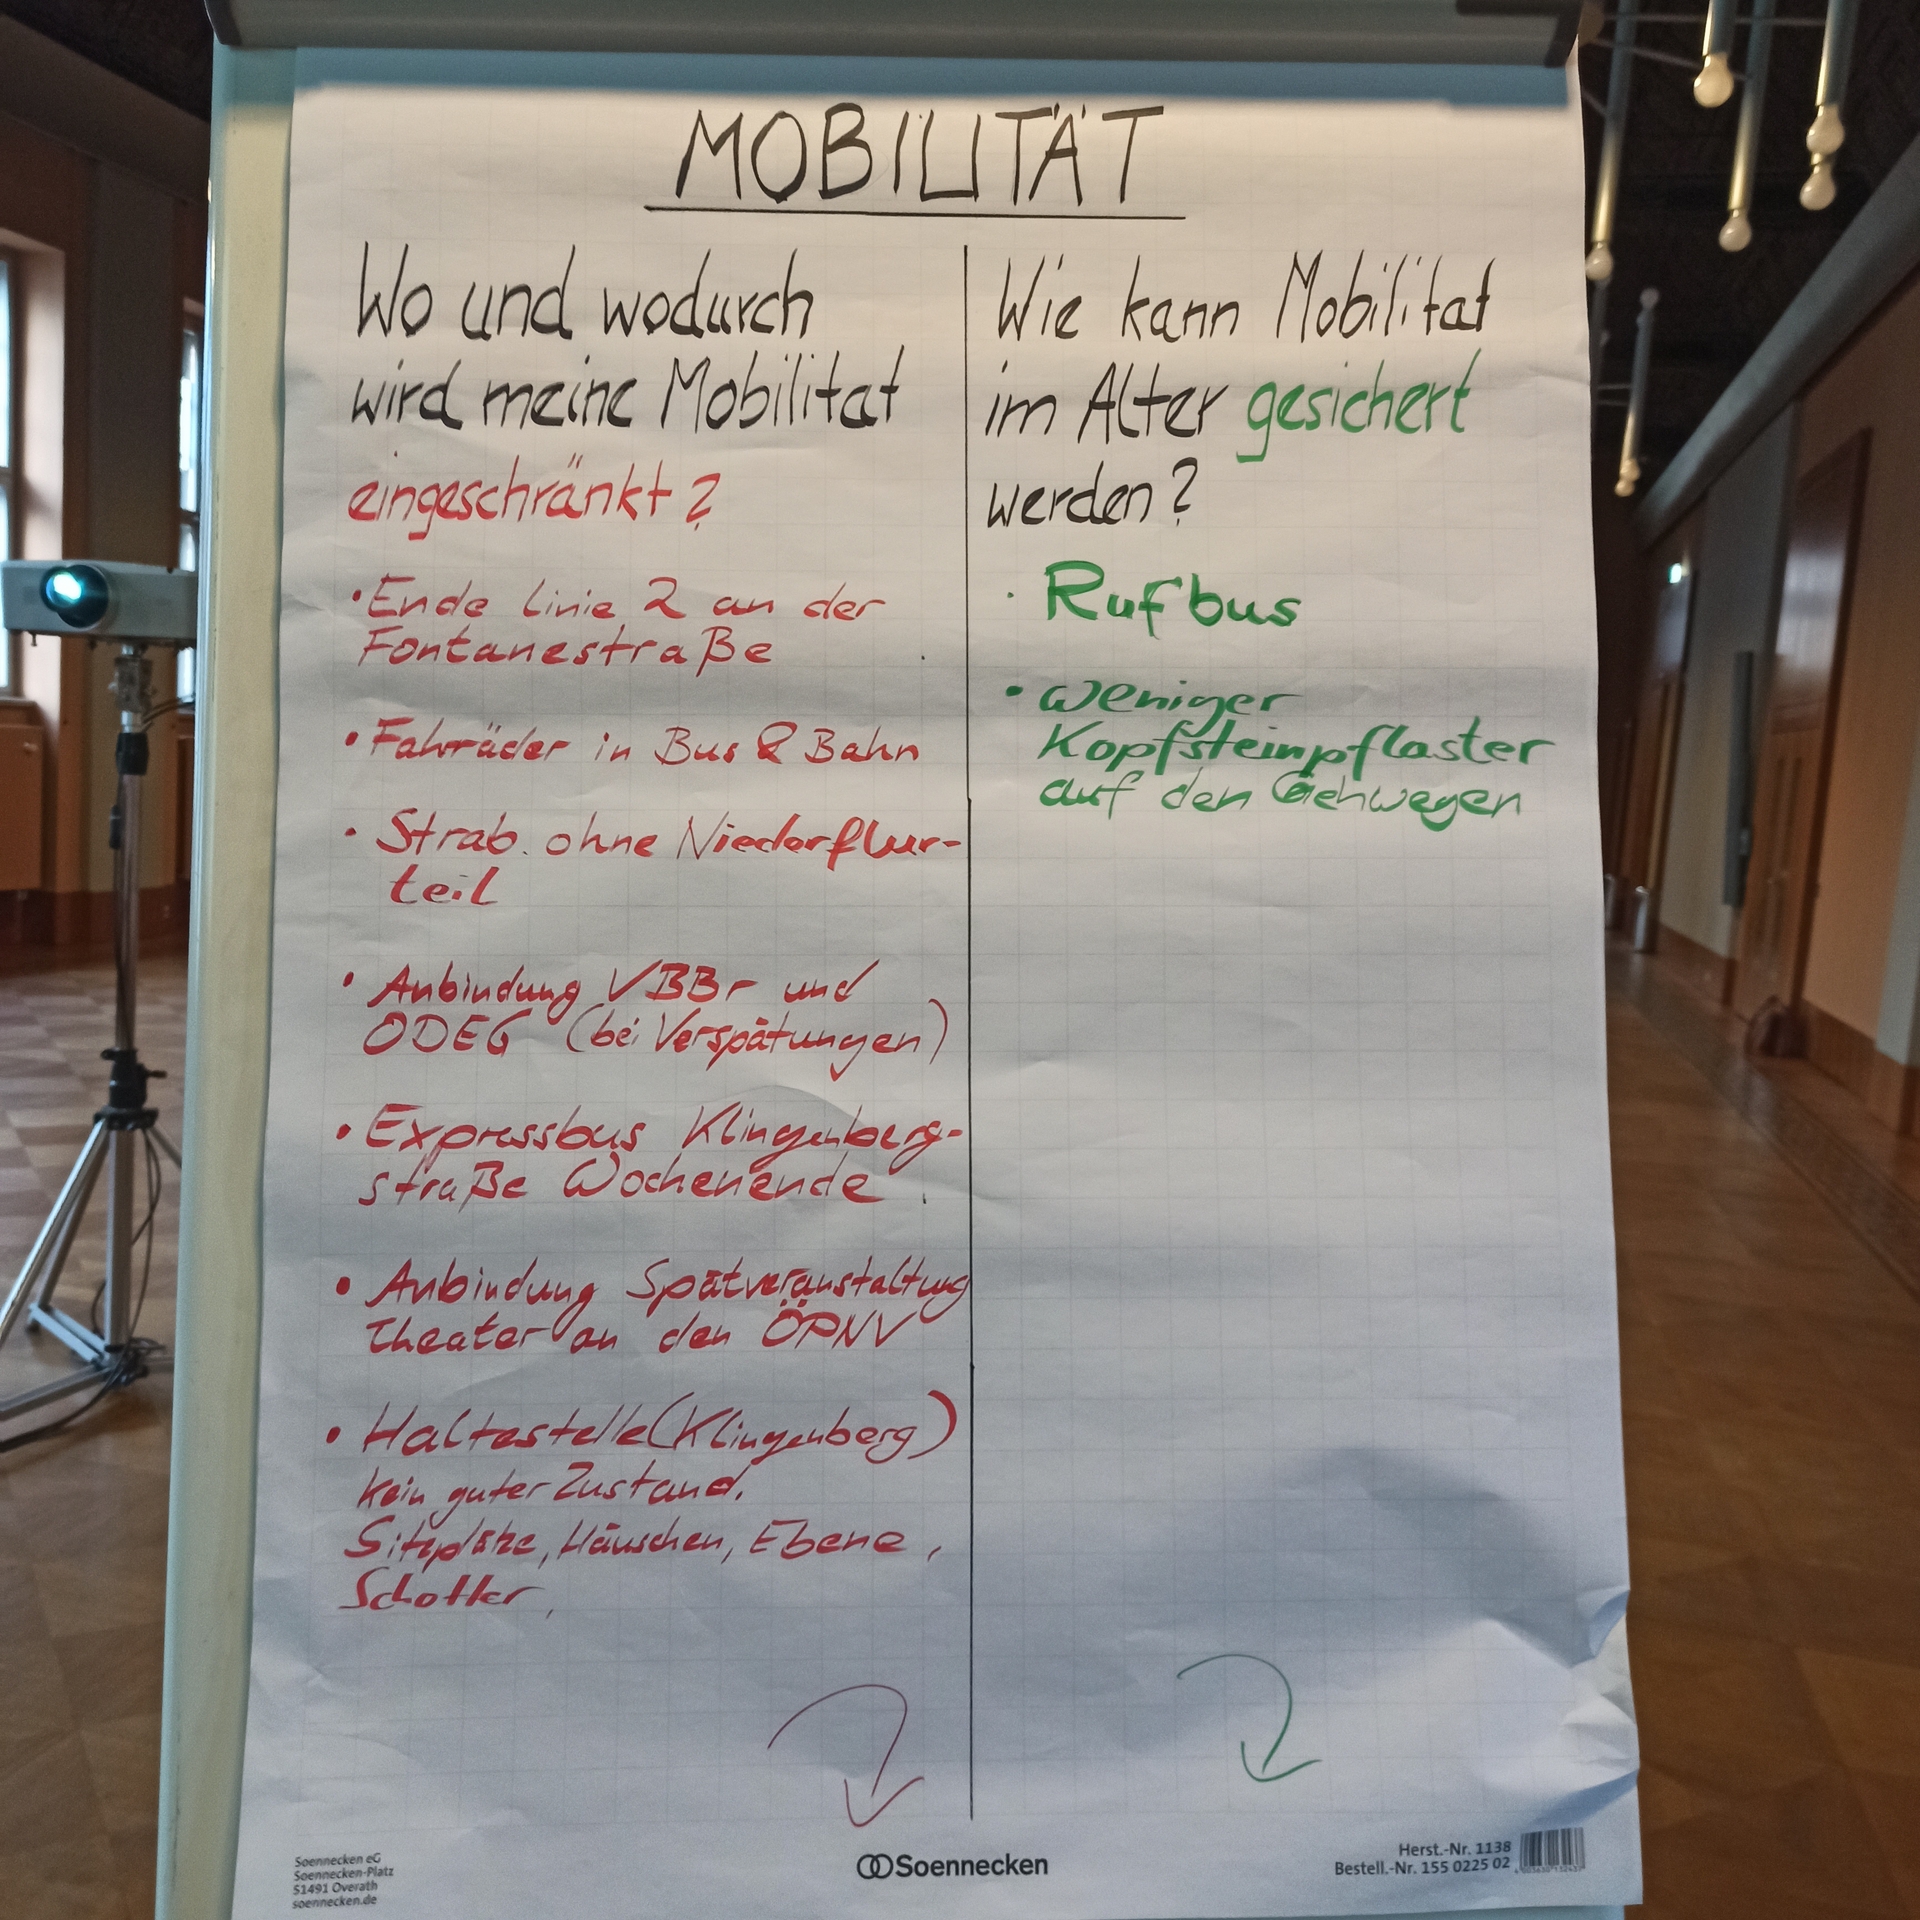 MOBILITÄT
Wo und wodurch
wird meine Mobilitat
eingeschränkt?
• Ende Linie 2 an der
Fontanestraße
• Fahrräder in Bus & Bahn
• Strab. ohne Niederflur-
teil
• Anbindung VBBr und
ODEG (bei Verspätungen)
• Expressbus Klingenberg-
straße Wochenende
• Anbindung Spätveranstaltung
Theater an den ÖPNV
• Haltestelle (Klingenberg)
Kein guter Zustand.
Sitzplätze, Häuschen, Ebene,
Schotter,
Wie kann Mobilitat
im Alter gesichert
werden?
• Rufbus
• weniger
Kopfsteinpflaster
auf den Gehwegen
Soennecken eG
Soennecken-Platz
51491 Overath
soennecken.de
Soennecken
Herst.-Nr. 1138
Bestell.-Nr. 155 0225 02